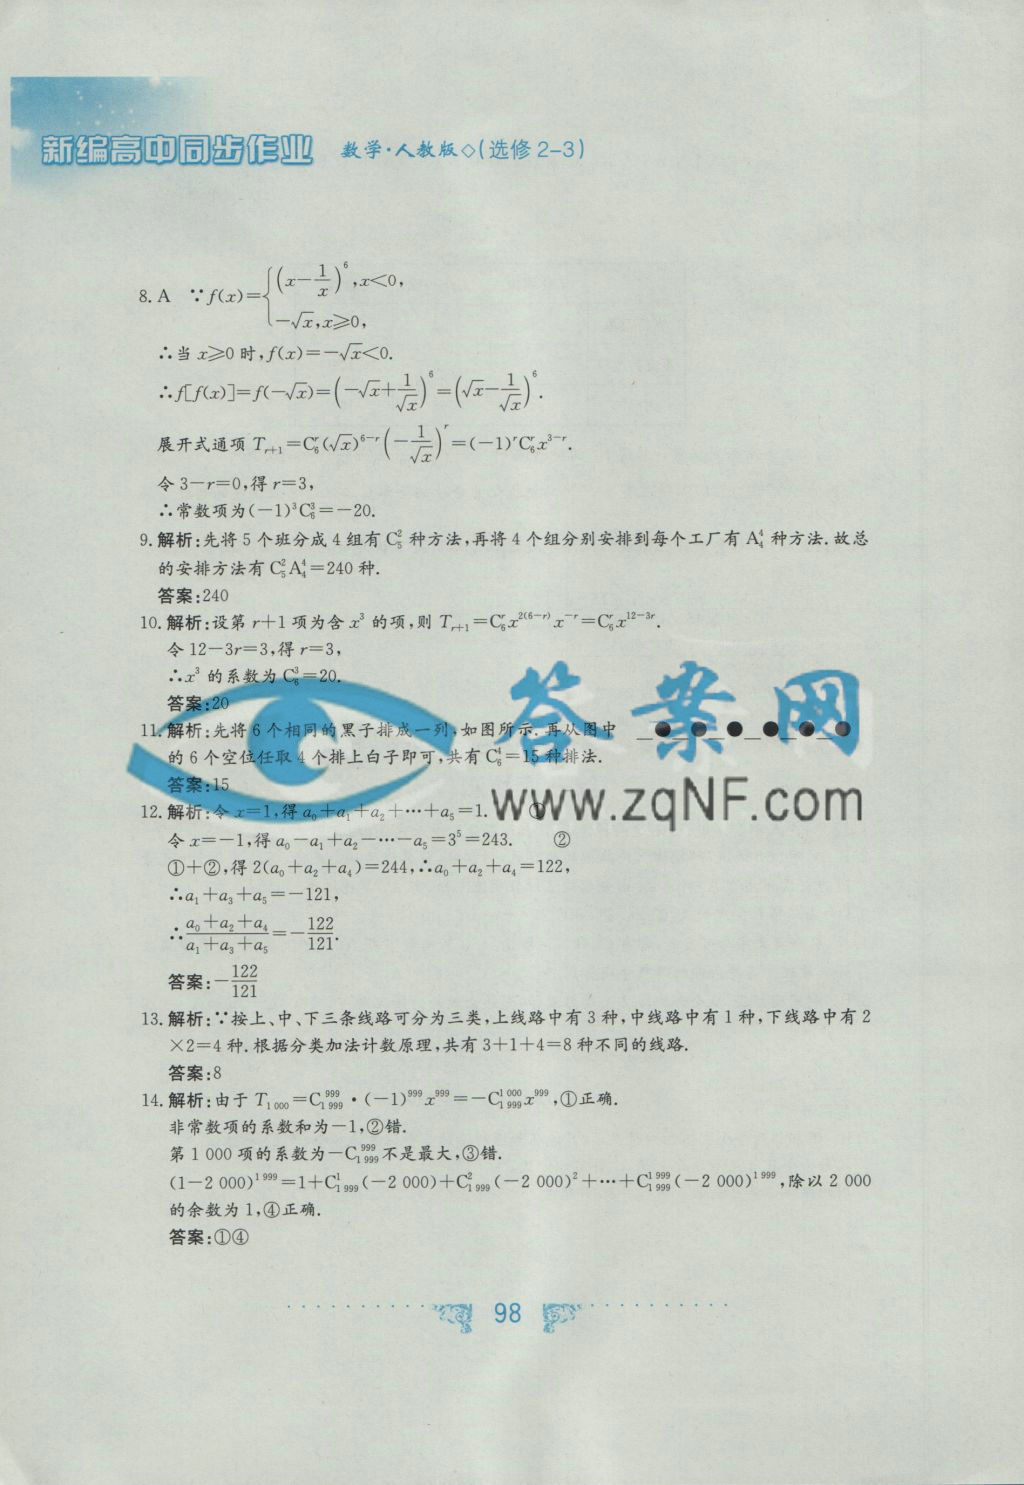 新编高中同步作业 数学·人教版◇(选修2-3)
8. A ∵f(x)={(x-1/x)^6,x<0,
-√x,x≥0,
∴当 x≥0 时,f(x)=-√x<0.
∴f[f(x)]=f(-√x)=(-√x+1/√x)^6=(√x-1/√x)^6.
展开式通项 T_{r+1}=C_6^r(√x)^{6-r}(-1/√x)^r=(-1)^rC_6^rx^{3-r}.
令 3-r=0,得 r=3,
∴常数项为(-1)^3C_6^3=-20.
9. 解析:先将 5 个班分成 4 组有 C_5^2 种方法,再将 4 个组分别安排到每个工厂有 A_4^4 种方法.故总
的安排方法有 C_5^2A_4^4=240 种.
答案:240
10. 解析:设第 r+1 项为含 x^3 的项,则 T_{r+1}=C_6^rx^{2(6-r)}x^{-r}=C_6^rx^{12-3r}.
令 12-3r=3,得 r=3,
∴x^3 的系数为 C_6^3=20.
答案:20
11. 解析:先将 6 个相同的黑子排成一列,如图所示.再从图中
的 6 个空位任取 4 个排上白子即可,共有 C_6^4=15 种排法.
答案:15
答案网
www.zqNF.com
12. 解析:令 x=1,得 a_0+a_1+a_2+…+a_5=1. ①
令 x=-1,得 a_0-a_1+a_2-…-a_5=3^5=243. ②
①+②,得 2(a_0+a_2+a_4)=244,∴a_0+a_2+a_4=122,
∴a_1+a_3+a_5=-121,
∴(a_0+a_2+a_4)/(a_1+a_3+a_5)=-122/121.
答案:-122/121
13. 解析:∵按上、中、下三条线路可分为三类,上线路中有 3 种,中线路中有 1 种,下线路中有 2
×2=4 种.根据分类加法计数原理,共有 3+1+4=8 种不同的线路.
答案:8
14. 解析:由于 T_{1 000}=C_{1 999}^{999}·(-1)^{999}x^{999}=-C_{1 999}^{1 000}x^{999},①正确.
非常数项的系数和为-1,②错.
第 1 000 项的系数为-C_{1 999}^{999}不是最大,③错.
(1-2 000)^{1 999}=1+C_{1 999}^1(-2 000)+C_{1 999}^2(-2 000)^2+…+C_{1 999}^{1 999}(-2 000)^{1 999},除以 2 000
的余数为 1,④正确.
答案:①④
98